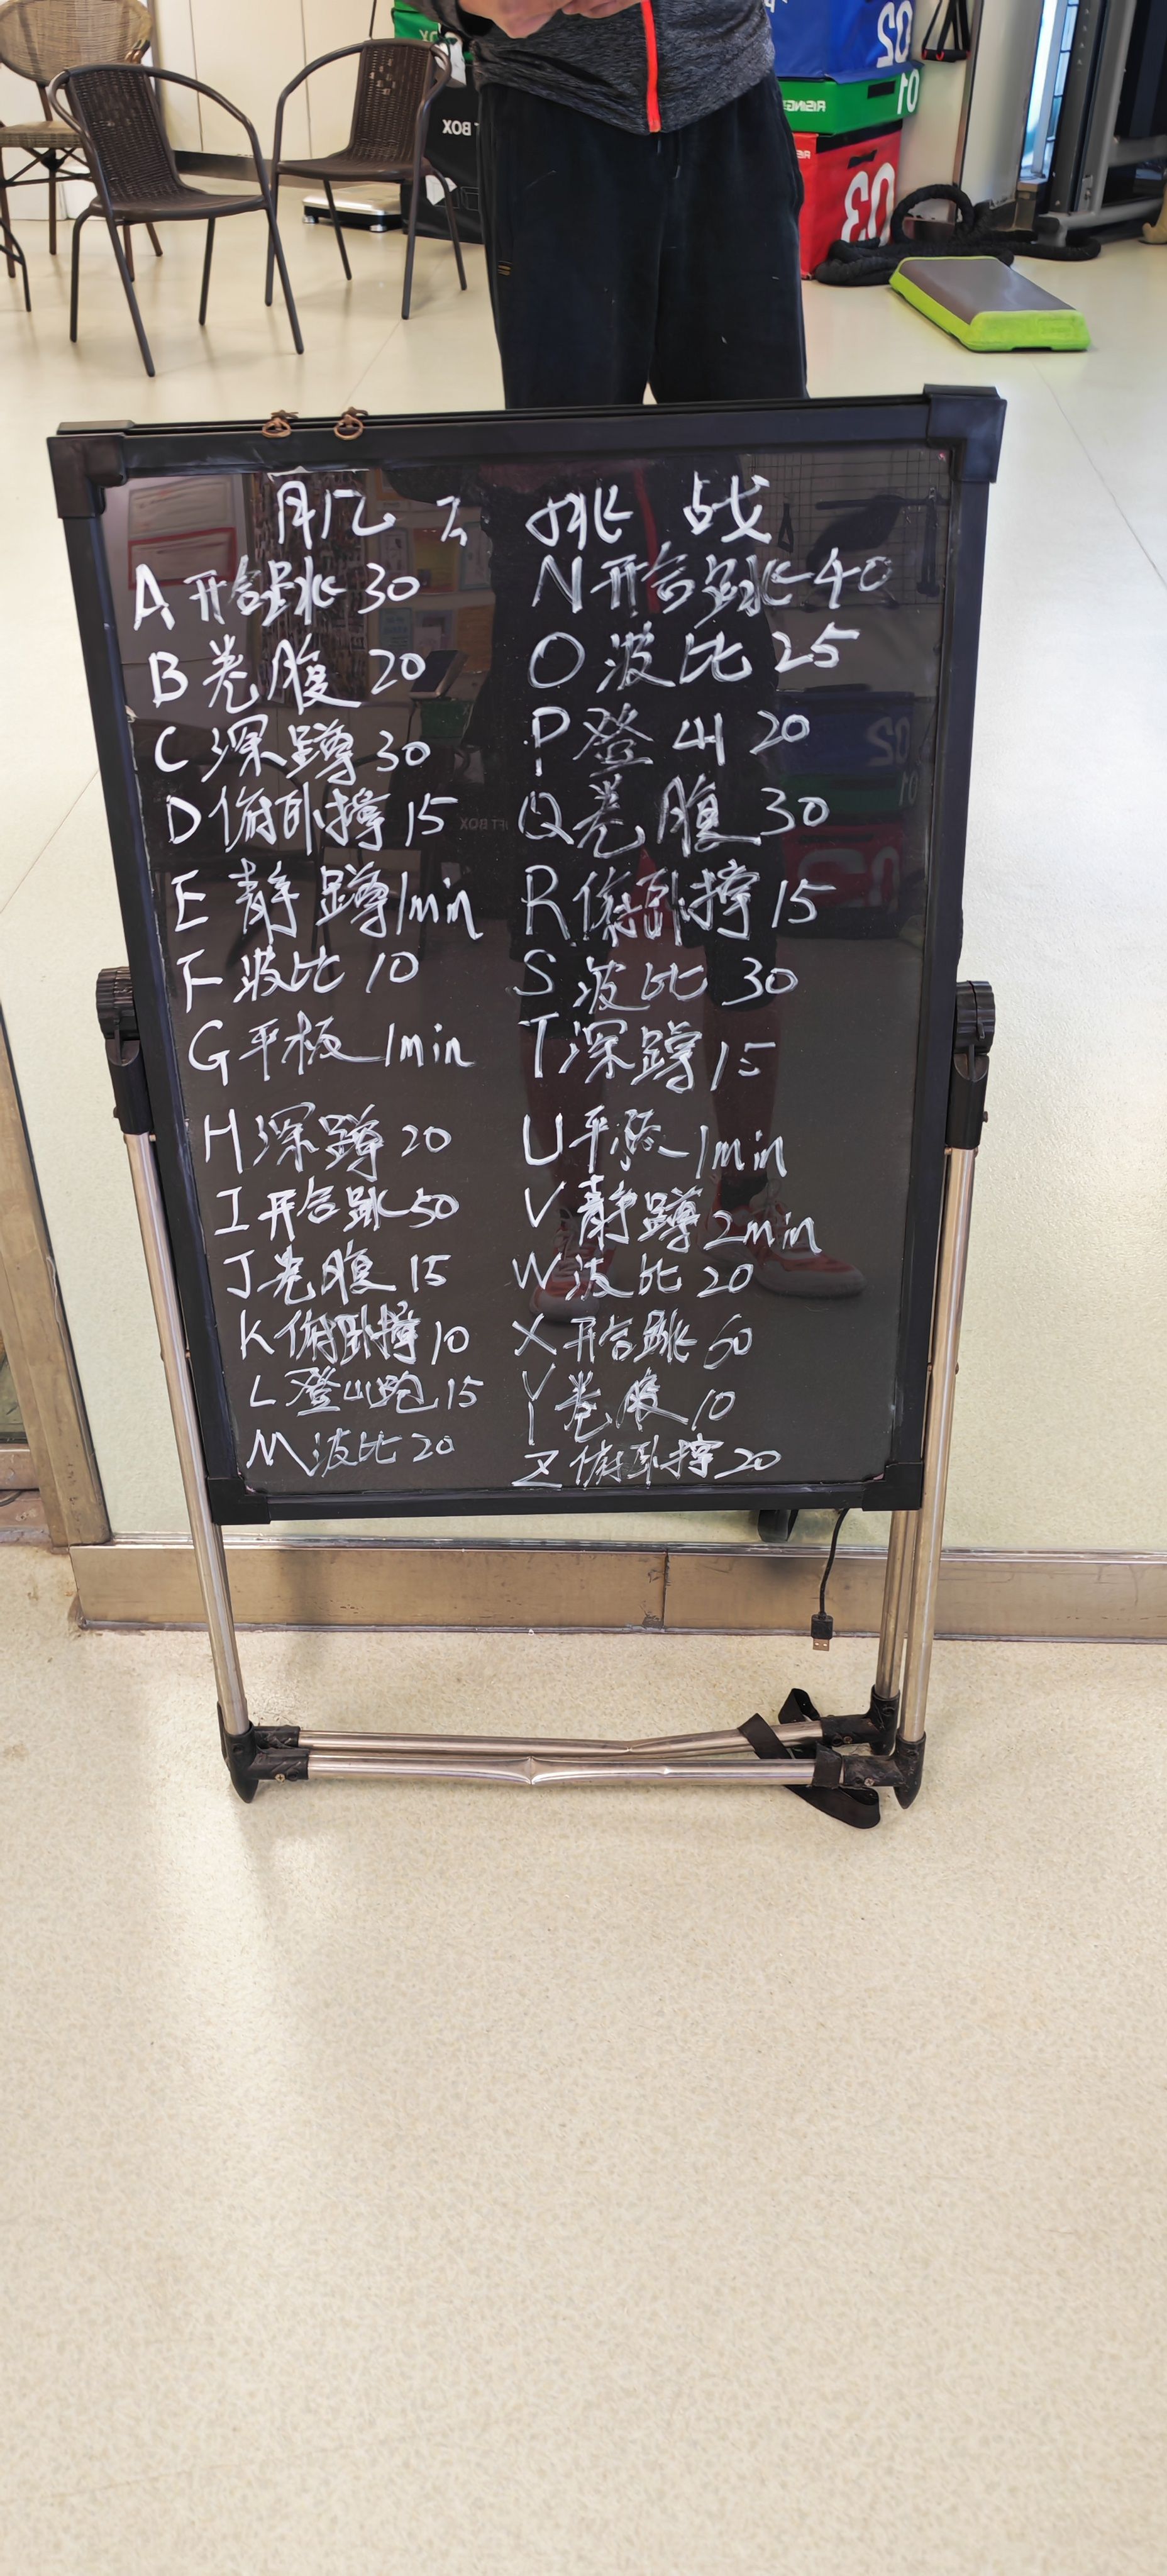 肌 挑战
A 开合跳 30
B 卷腹 20
C 深蹲 30
D 俯卧撑 15
E 静蹲 1min
F 波比 10
G 平板 1min
H 深蹲 20
I 开合跳 50
J 卷腹 15
K 俯卧撑 10
L 登山跑 15
M 波比 20
N 开合跳 40
O 波比 25
P 登山 20
Q 卷腹 30
R 俯卧撑 15
S 波比 30
T 深蹲 15
U 平板 1min
V 静蹲 2min
W 波比 20
X 开合跳 60
Y 卷腹 10
Z 俯卧撑 20
02
01
RISING
03